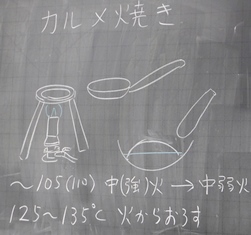 カルメ焼き
~105(110) 中(強)火 → 中弱火
125~135℃ 火からおろす